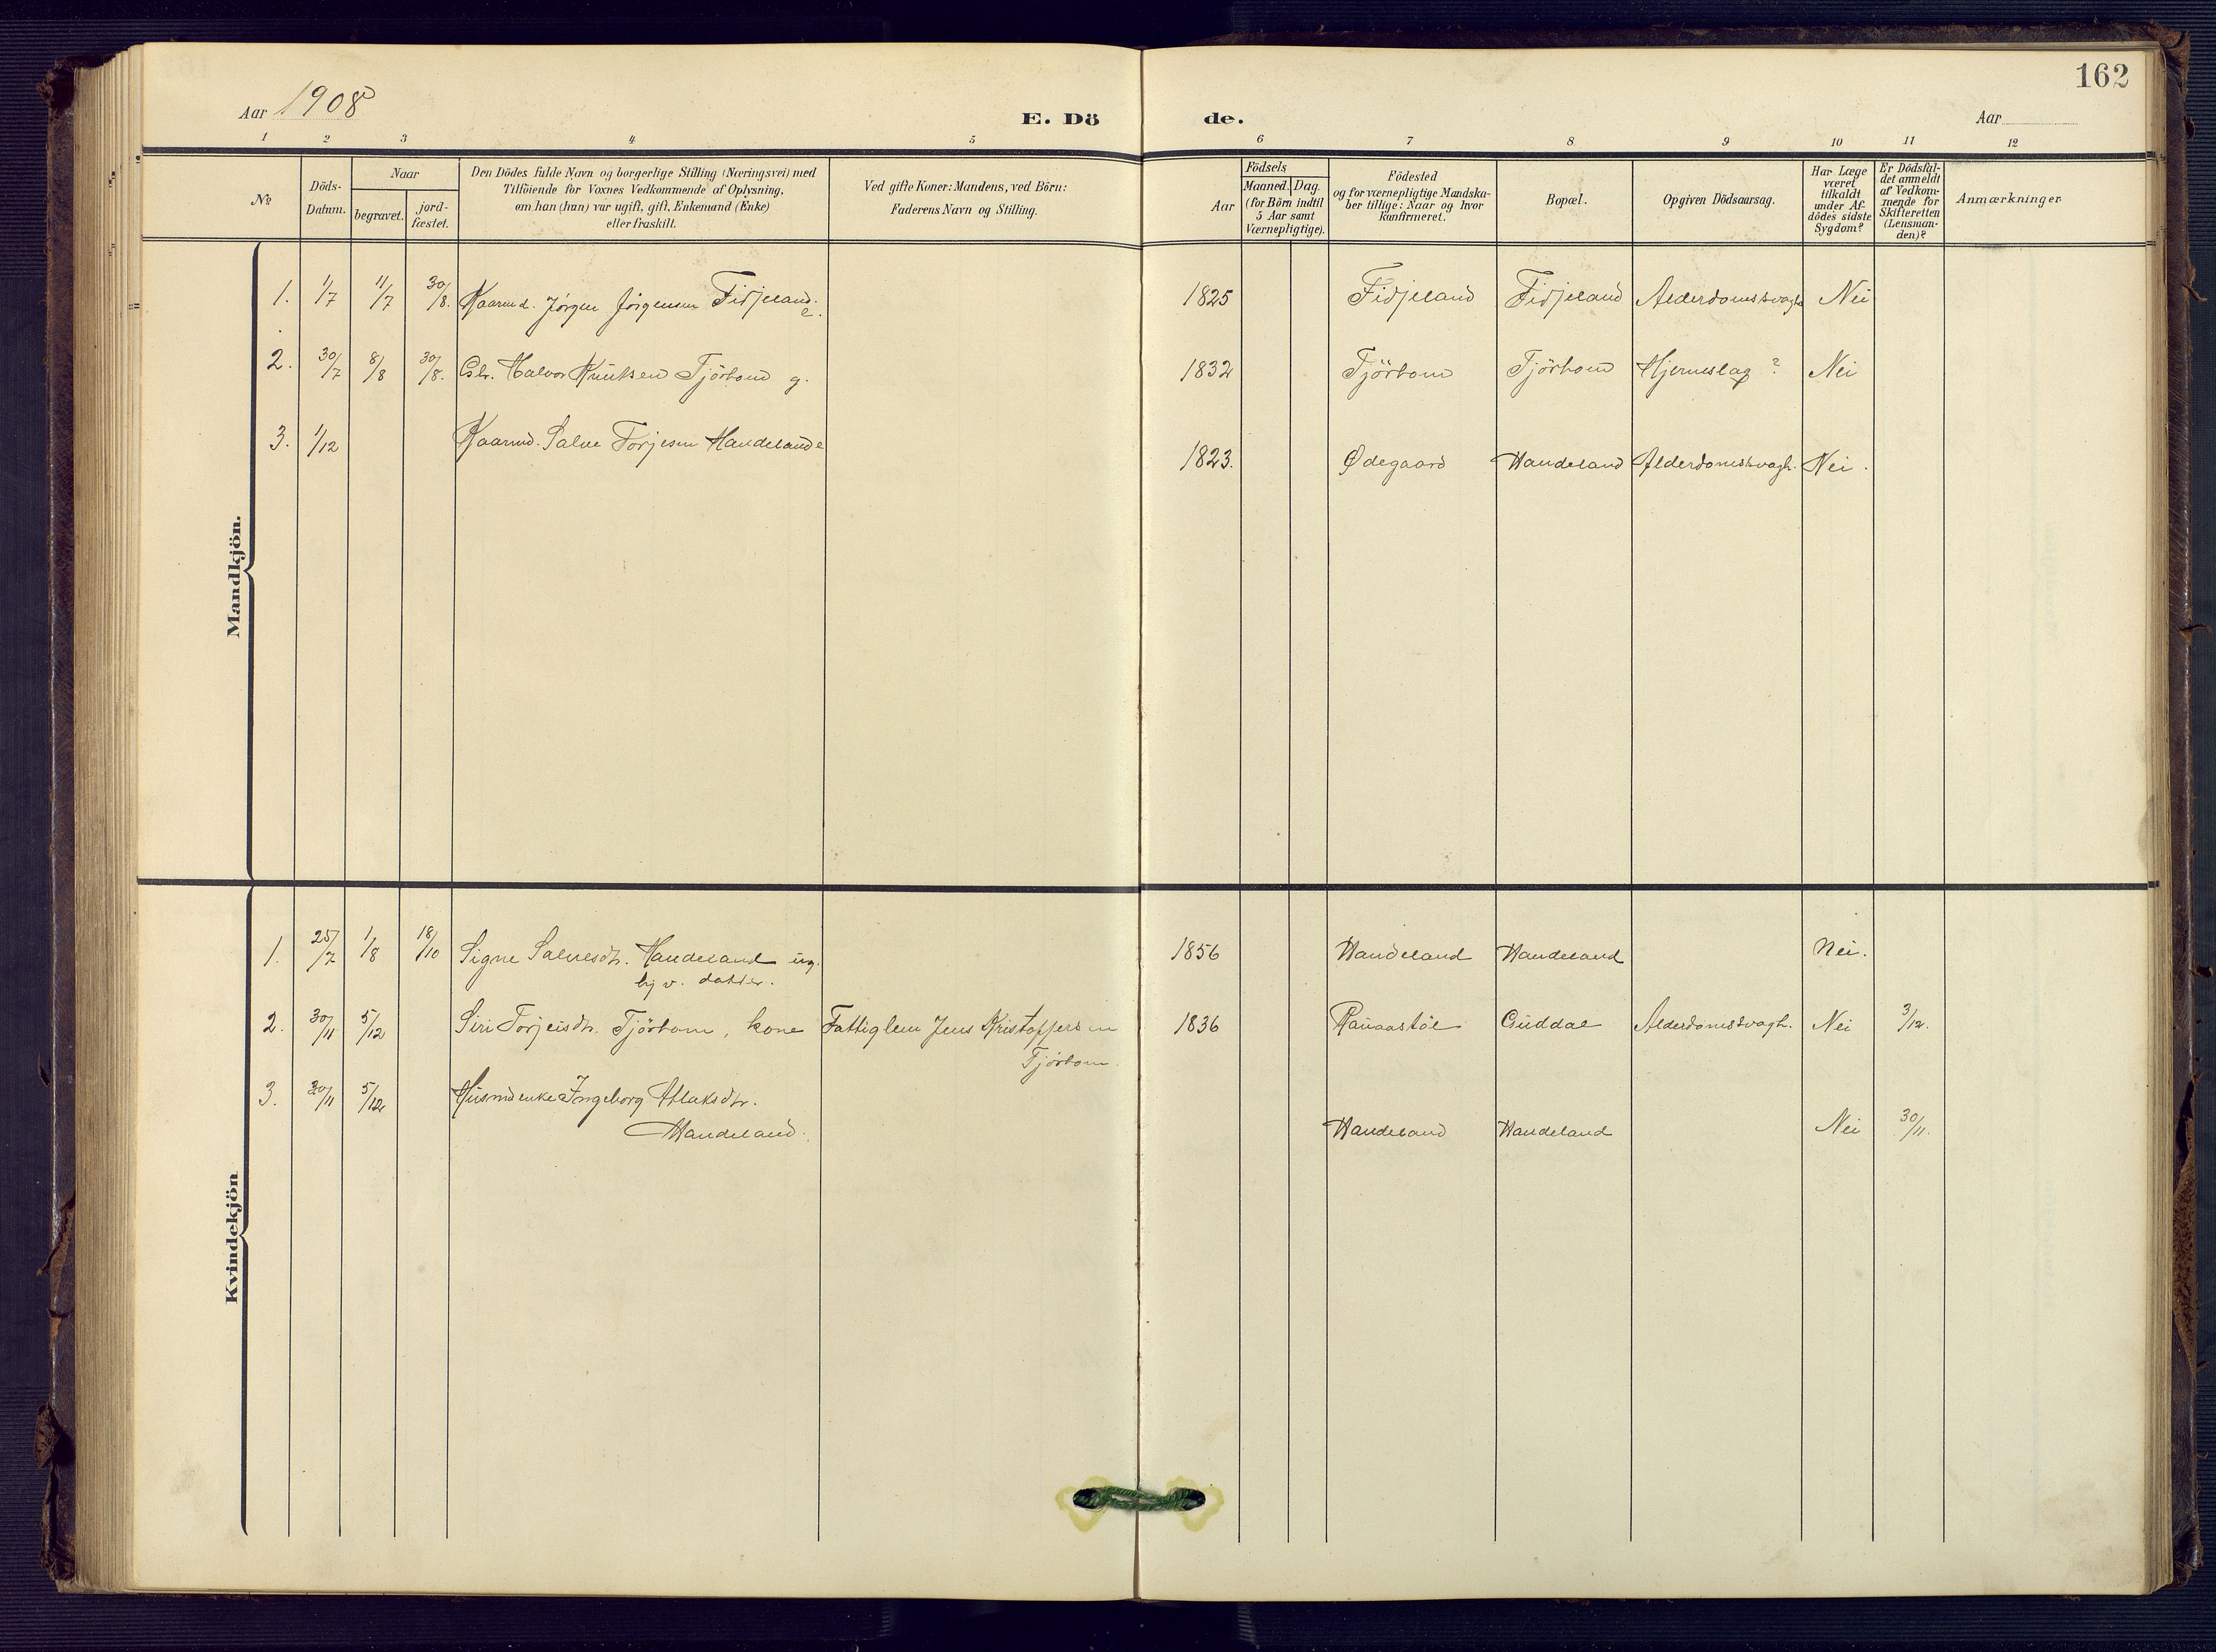 162
Aar 1908
E. Dö de.
Aar
1 2 3 4 5 6 7 8 9 10 11 12
№
Döds-
Datum.
Naar
begravet.
jord-
fæstet.
Den Dödes fulde Navn og borgerlige Stilling (Næringsvei) med
Tilföiende for Voxnes Vedkommende af Oplysning,
om han (hun) var ugift, gift, Enkemand (Enke)
eller fraskilt.
Ved gifte Koner: Mandens, ved Börn:
Faderens Navn og Stilling.
Födsels
Aar
Maaned. Dag.
(for Börn indtil
5 Aar samt
Værnepligtige).
Födested
og for værnepligtige Mandska-
ber tillige: Naar og hvor
konfirmeret.
Bopæl.
Opgiven Dödsaarsag.
Har Læge
været
tilkaldt
under Af-
dödes sidste
Sygdom?
Er Dödsfal-
det anmeldt
af Vedkom-
mende for
Skifteretten
(Lensman-
den)?
Anmærkninger
Mandkjön.
1. 1/7 11/7 30/8. Kaarmd. Jörgen Jörgensen Fidjeland. e. 1825 Fidjeland Fidjeland Alderdomssvagh Nei
2. 30/7 8/8 30/8. Gbr. Halvor Knutsen Tjörhom g. 1832 Tjörhom Tjörhom Hjerneslag ? Nei
3. 1/12 Kaarmd. Salve Torjesen Handeland e 1823. Ødegaard Handeland Alderdomssvagh. Nei.
Kvindekjön
1. 25/7 1/8 18/10 Signe Salvesdtr. Handeland ug. 1856 Handeland Handeland Nei.
hj v. datter.
2. 30/11 5/12 Siri Torjeisdtr. Tjörhom, kone Fattiglem Jens Kristoffersen 1836 Rauaastöl Guddal Alderdomssvagh. Nei 3/12.
Tjörhom.
3. 30/11 5/12 Husmdenke Ingeborg Atlaksdtr.
Handeland. Handeland Handeland Nei 30/11.